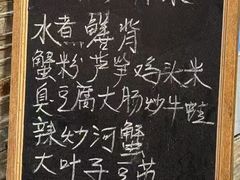 水煮鳝背
蟹粉芦笋鸡头米
臭豆腐大肠炒牛蛙
辣炒河蟹
大叶子